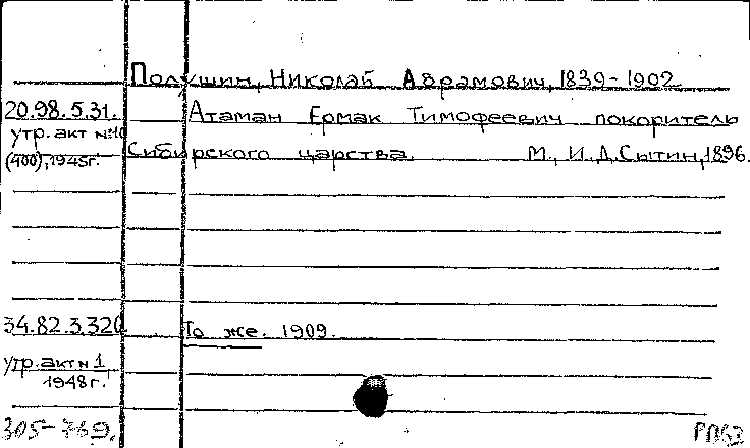 Полушин, Николай Аврамович, 1839-1902.
20.98.5.31. Атаман Ермак Тимофеевич покоритель
утр. акт №10
(400), 1945г. Сибирского царства. М., И.Д.Сытин, 1896.
34.82.3.320 То же. 1909.
утр. акт №1,
1948г.
305-769.